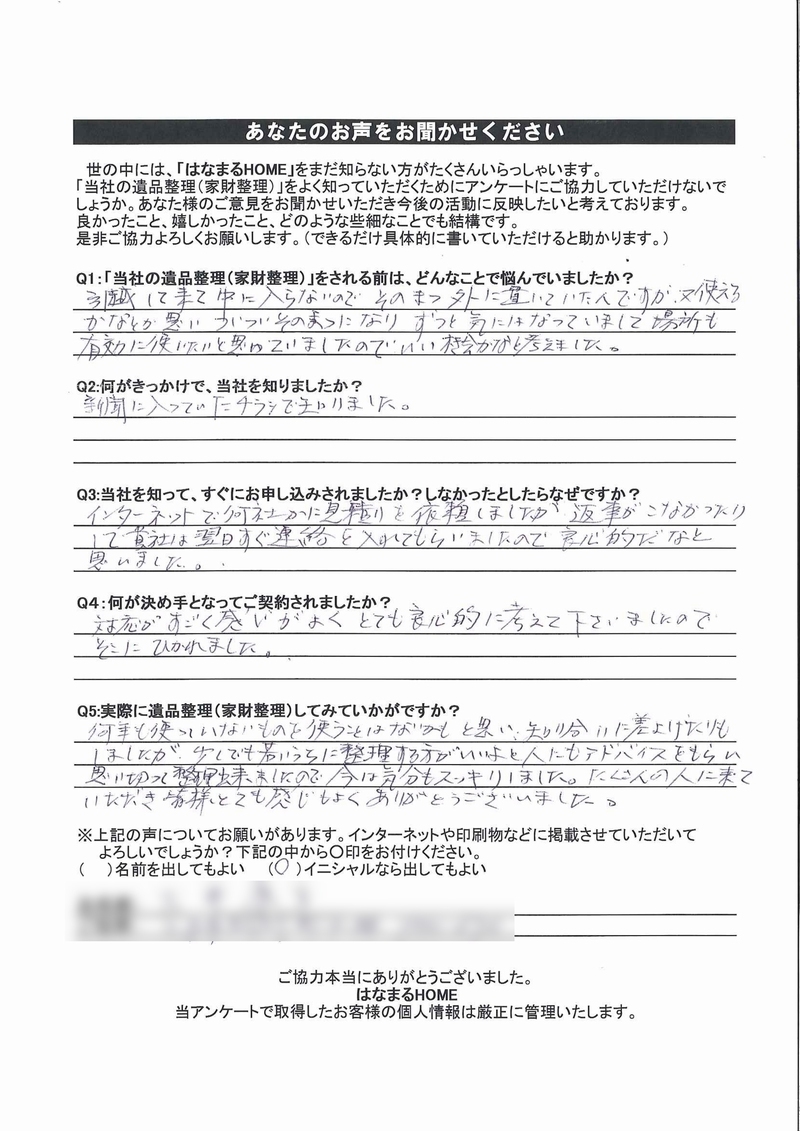 あなたのお声をお聞かせください
世の中には、「はなまるHOME」をまだ知らない方がたくさんいらっしゃいます。
「当社の遺品整理(家財整理)」をよく知っていただくためにアンケートにご協力していただけないで
しょうか。あなた様のご意見をお聞かせいただき今後の活動に反映したいと考えております。
良かったこと、嬉しかったこと、どのような些細なことでも結構です。
是非ご協力よろしくお願いします。(できるだけ具体的に書いていただけると助かります。)
Q1:「当社の遺品整理(家財整理)」をされる前は、どんなことで悩んでいましたか?
引越して来て中に入らないので そのまゝ外に置いていたんですが、又使える
かなとか思い ついついそのまゝになり ずっと気にはなっていまして場所も
有効に使いたいと思っていましたのでいい機会かなと考えました。
Q2:何がきっかけで、当社を知りましたか?
新聞に入っていたチラシで知りました。
Q3:当社を知って、すぐにお申し込みされましたか?しなかったとしたらなぜですか?
インターネットで何社かに見積りを依頼しましたが 返事がこなかったり
して貴社は翌日すぐ連絡を入れてもらいましたので良心的だなと
思いました。
Q4:何が決め手となってご契約されましたか?
対応がすごく感じがよく とても良心的に考えて下さいましたので
そこにひかれました。
Q5:実際に遺品整理(家財整理)してみていかがですか?
何年も使っていないものを使うことはないかもと思い、知り合いに差上げたりも
しましたが、少しでも若いうちに整理する方がいいよと人にもアドバイスをもらい
思い切って整理出来ましたので今は気分もスッキリしました。たくさんの人に来て
いただき皆様とても感じもよくありがとうございました。
※上記の声についてお願いがあります。インターネットや印刷物などに掲載させていただいて
よろしいでしょうか?下記の中から〇印をお付けください。
( )名前を出してもよい (〇)イニシャルなら出してもよい
ご協力本当にありがとうございました。
はなまるHOME
当アンケートで取得したお客様の個人情報は厳正に管理いたします。